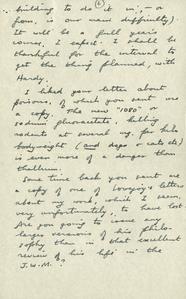 6
building to do it in, — or
from, is our main difficulty).
It will be a full year's
course, I expect. I shall be
thankful for the interval to
get the thing planned, with
Hardy.
I liked your letter about
poisons, of which you sent me
a copy. The new "1080" or
sodium fluoracetate, killing
rodents at several mg. per kilo
bodyweight (and dogs & cats etc)
is even more of a danger than
thallium.
Some time back you sent me
a copy of one of Lovejoy's letters
about my work, which I seem,
very unfortunately, to have lost
Are you going to issue any
larger versions of his philo-
sophy than in that excellent
review of his life in the
J.W.M.?